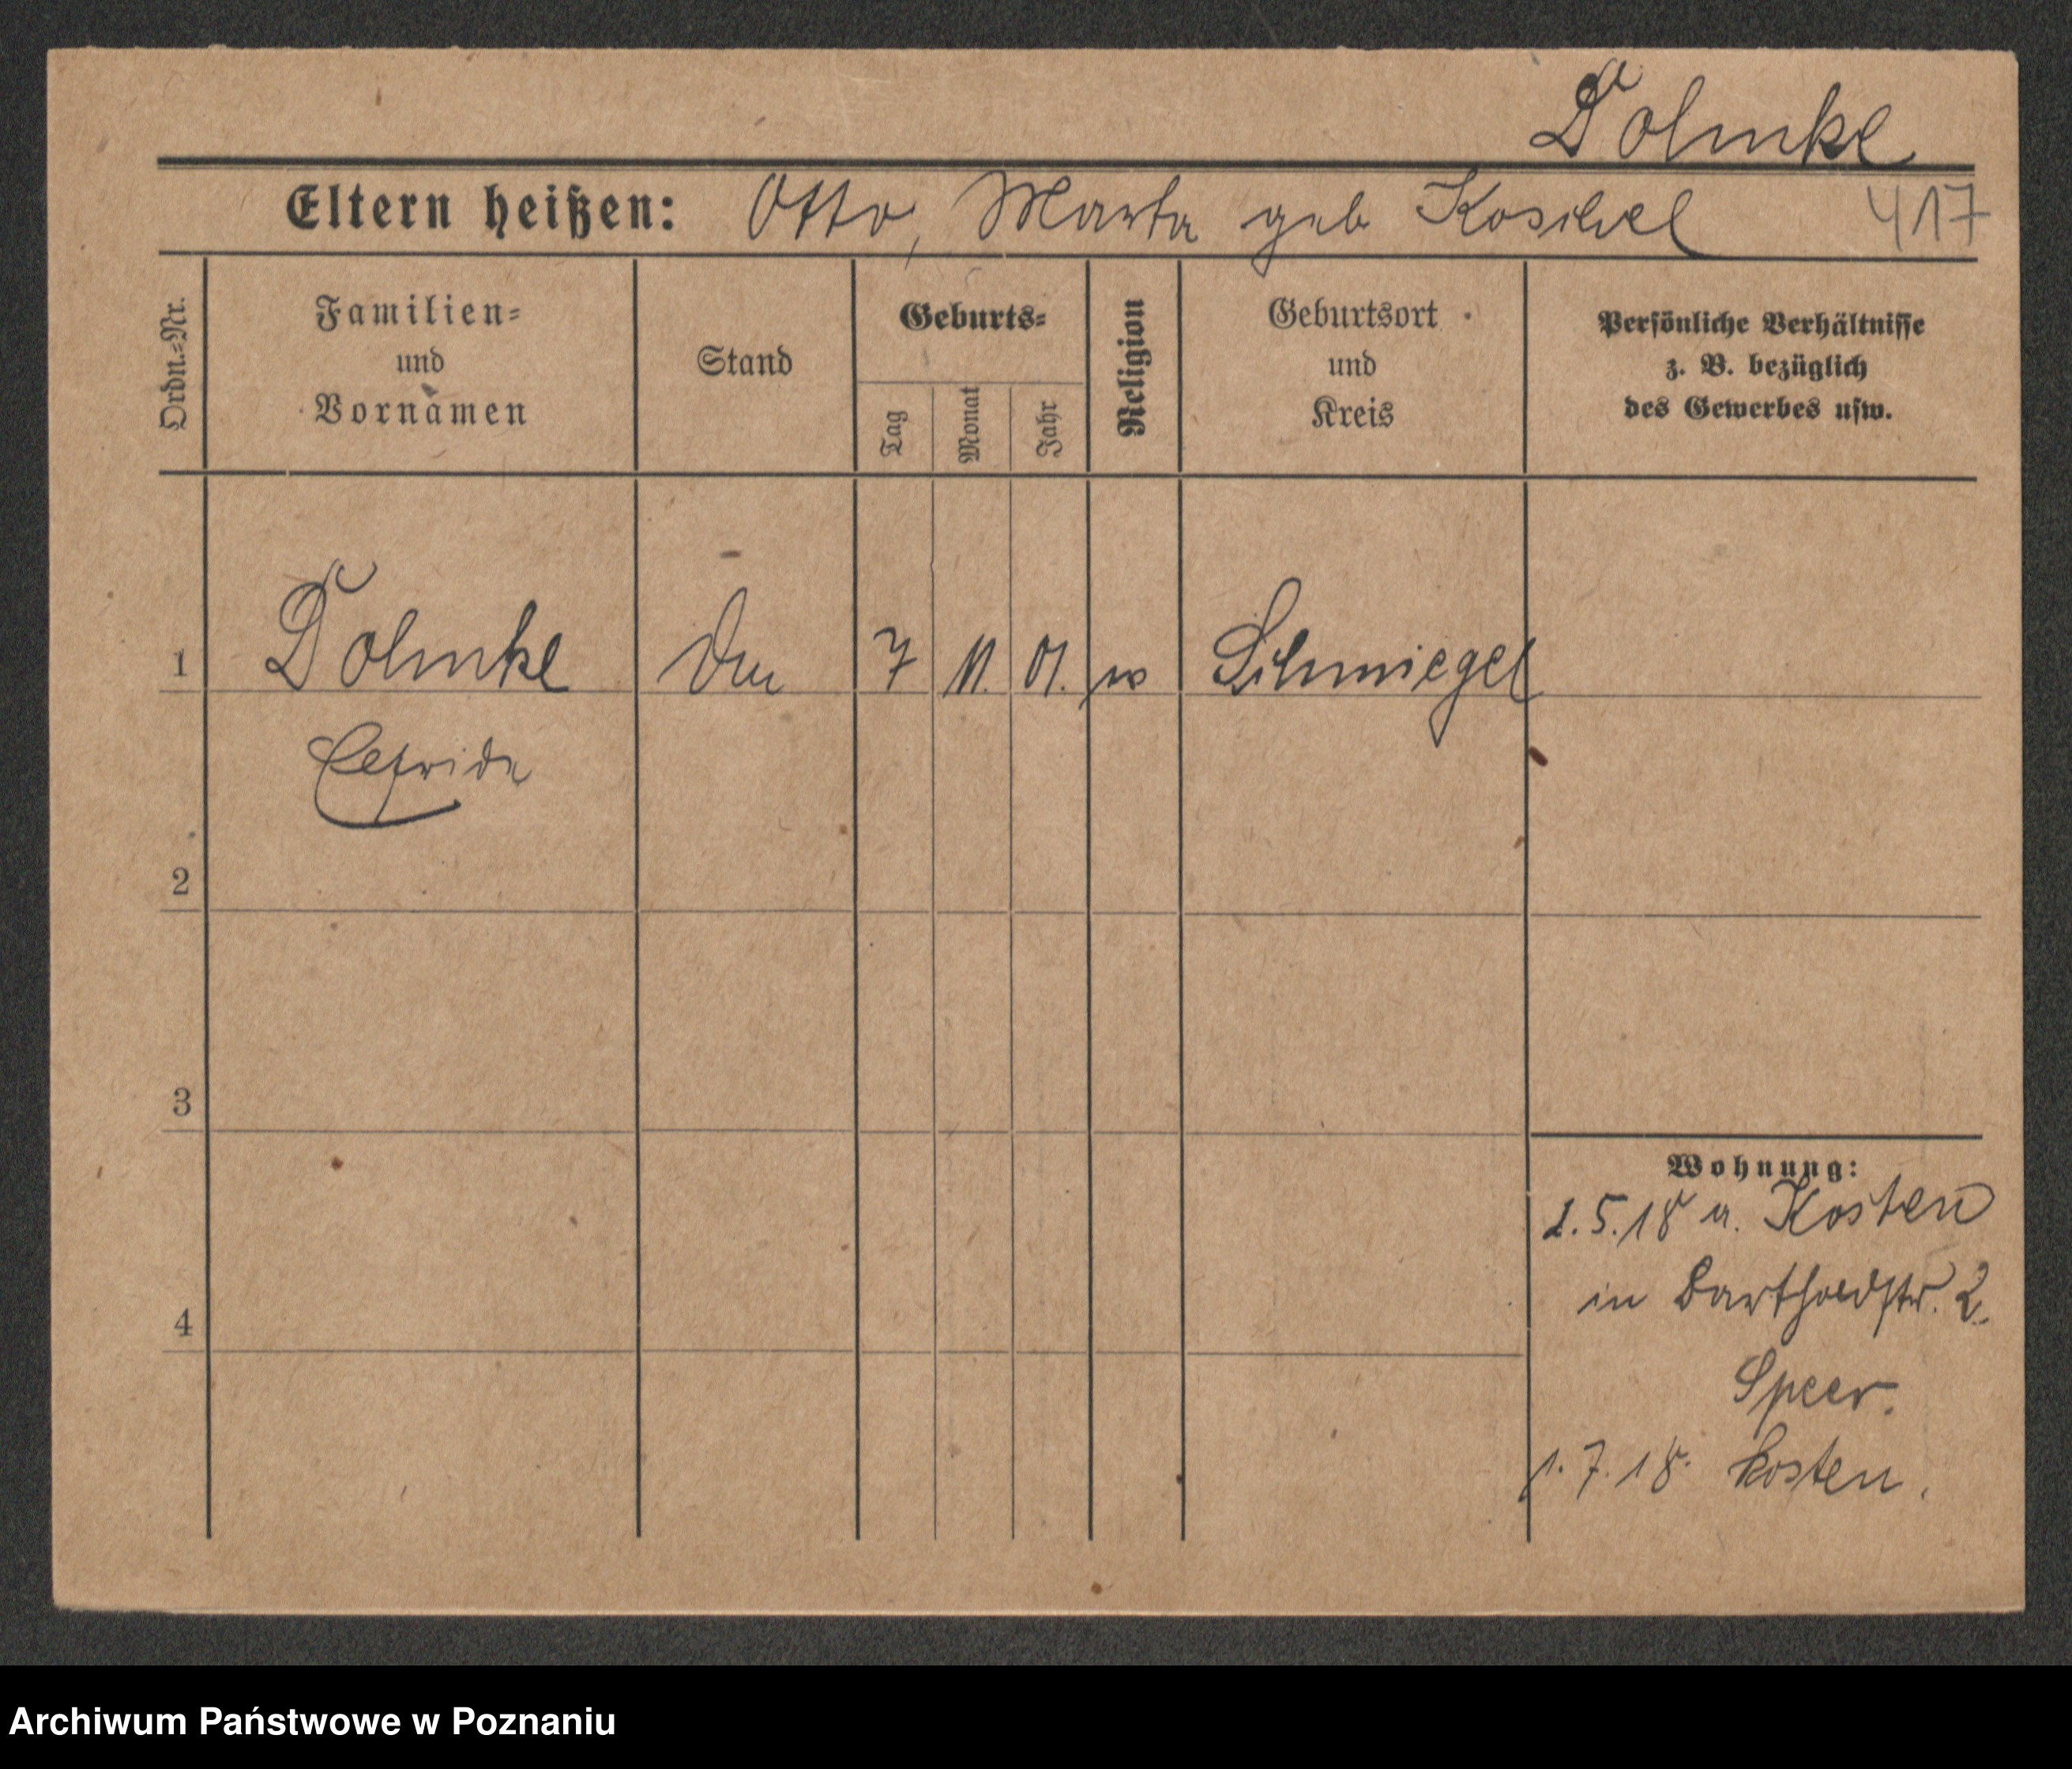 Dolmke
Eltern heißen: Otto, Marta geb Koschel 417
Ordn.=Nr.
Familien=
und
Vornamen
Stand
Geburts=
Tag
Monat
Jahr
Religion
Geburtsort
und
Kreis
Persönliche Verhältnisse
z. B. bezüglich
des Gewerbes usw.
1 Dolmke 7 11. 01. Schmiegel
2
3
4
Wohnung:
1.5.18 a. Kosten
in Bartholdstr. 2.
Speer.
1.7.18. Kosten.
Archiwum Państwowe w Poznaniu